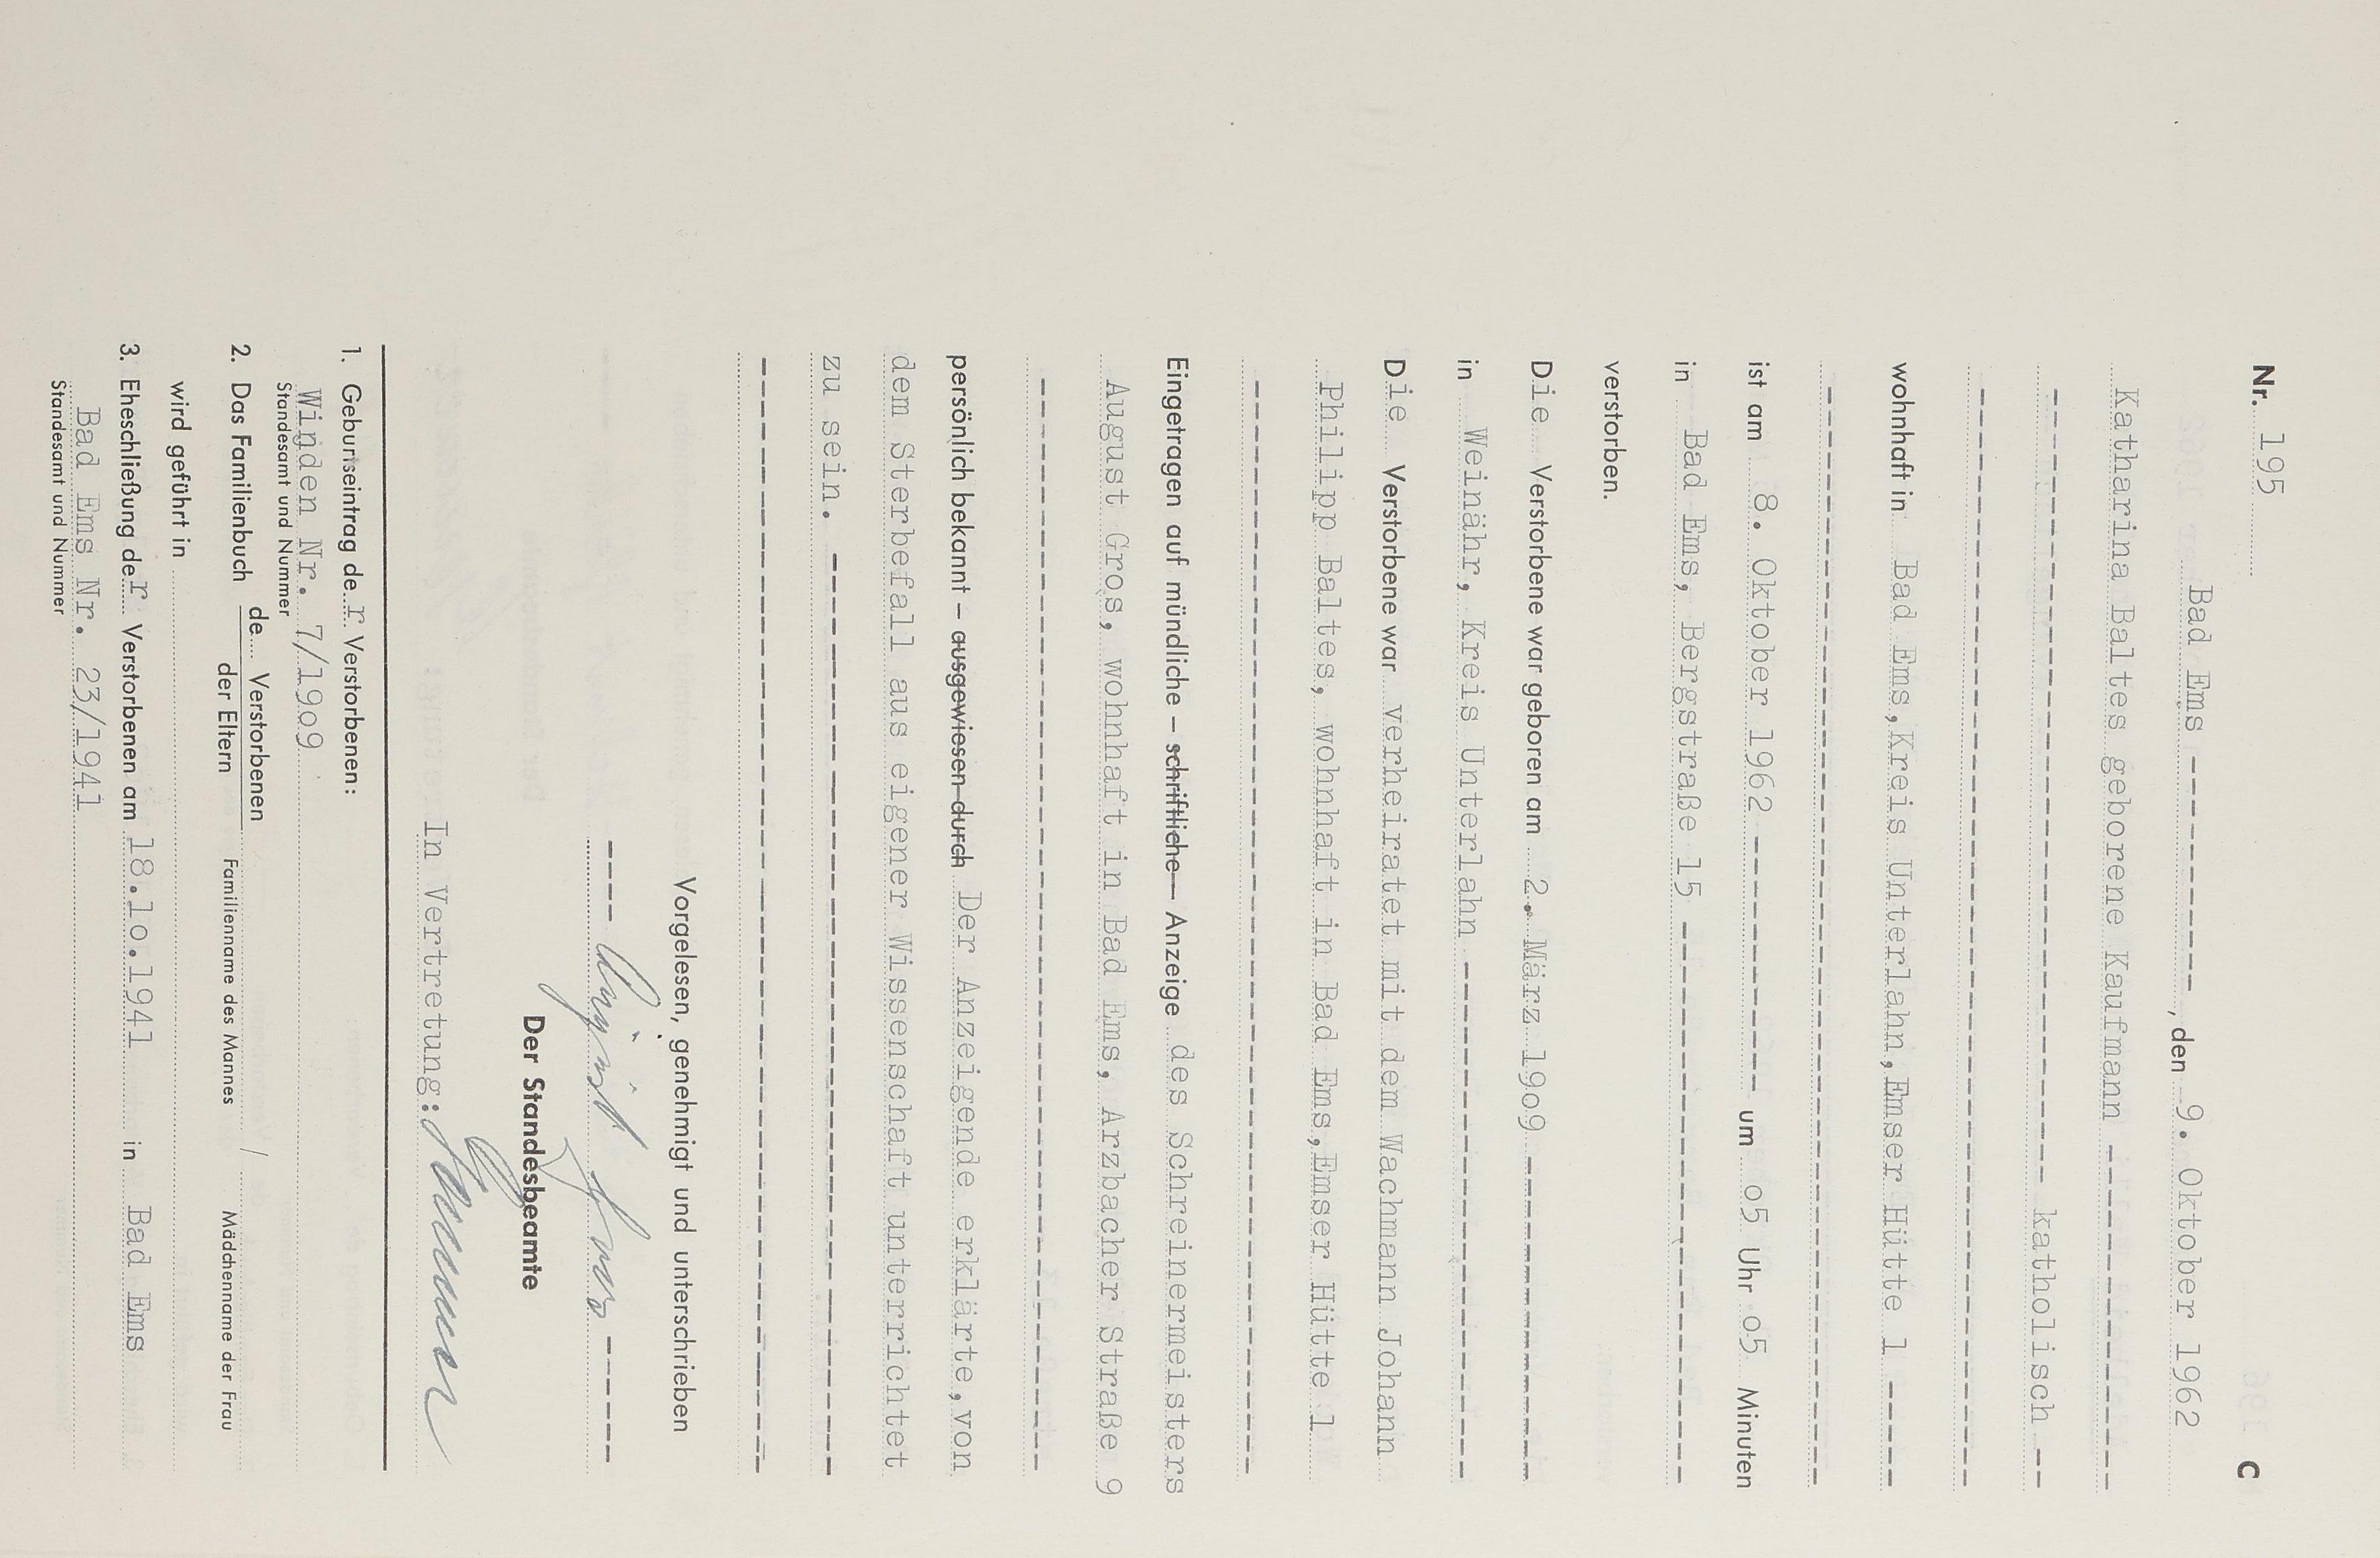 Nr. 195 C
Bad Ems ----------, den 9. Oktober 1962
Katharina Baltes geborene Kaufmann ----------------
----------------------------------- katholisch --
wohnhaft in Bad Ems,Kreis Unterlahn,Emser Hütte 1 -----
ist am 8. Oktober 1962 ------------ um o5 Uhr o5 Minuten
in Bad Ems, Bergstraße 15 -------------------------
verstorben.
Die Verstorbene war geboren am 2. März 19o9 ---------------
in Weinähr, Kreis Unterlahn -----------------------
Die Verstorbene war verheiratet mit dem Wachmann Johann
Philipp Baltes, wohnhaft in Bad Ems,Emser Hütte 1
Eingetragen auf mündliche – schriftliche – Anzeige des Schreinermeisters
August Gros, wohnhaft in Bad Ems, Arzbacher Straße 9
persönlich bekannt – ausgewiesen durch Der Anzeigende erklärte,von
dem Sterbefall aus eigener Wissenschaft unterrichtet
zu sein. ------------------------------------------
Vorgelesen, genehmigt und unterschrieben
---- August Gros ------
Der Standesbeamte
In Vertretung:
1. Geburtseintrag der Verstorbenen:
Winden Nr. 7/19o9
Standesamt und Nummer
2. Das Familienbuch de.... Verstorbenen
der Eltern Familienname des Mannes / Mädchenname der Frau
wird geführt in
3. Eheschließung der Verstorbenen am 18.1o.1941 in Bad Ems
Bad Ems Nr. 23/1941
Standesamt und Nummer